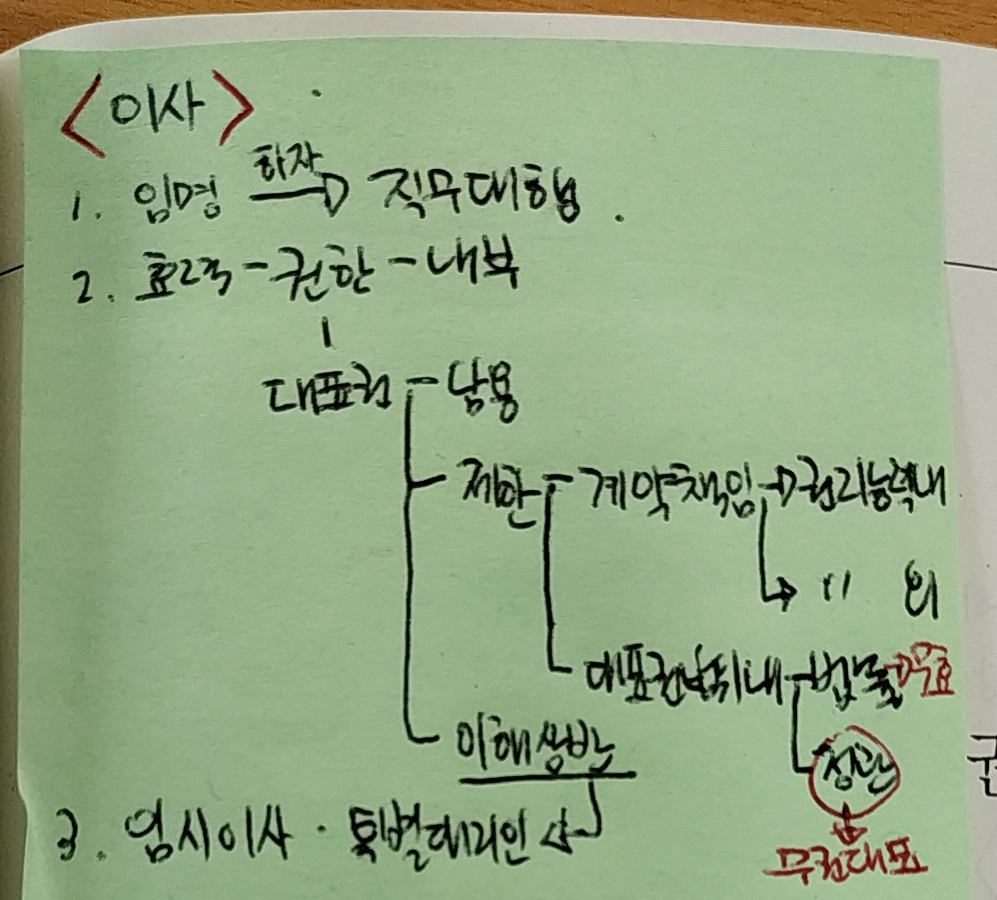 <이사>
하자
1. 임명 → 직무대행.
2. 효력 - 권한 - 내부
대표권 - 남용
제한 - 계약책임 → 권리능력내
→ 〃 외
대표권범위내 - 법률 → 무효
정관
이해상반
3. 임시이사 · 특별대리인 ←
무권대표
권